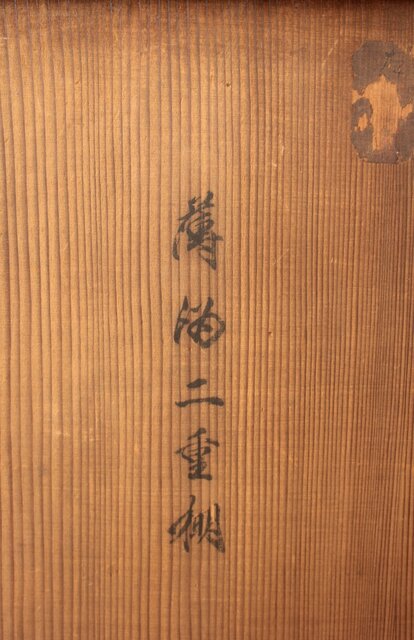 薄溜二重棚